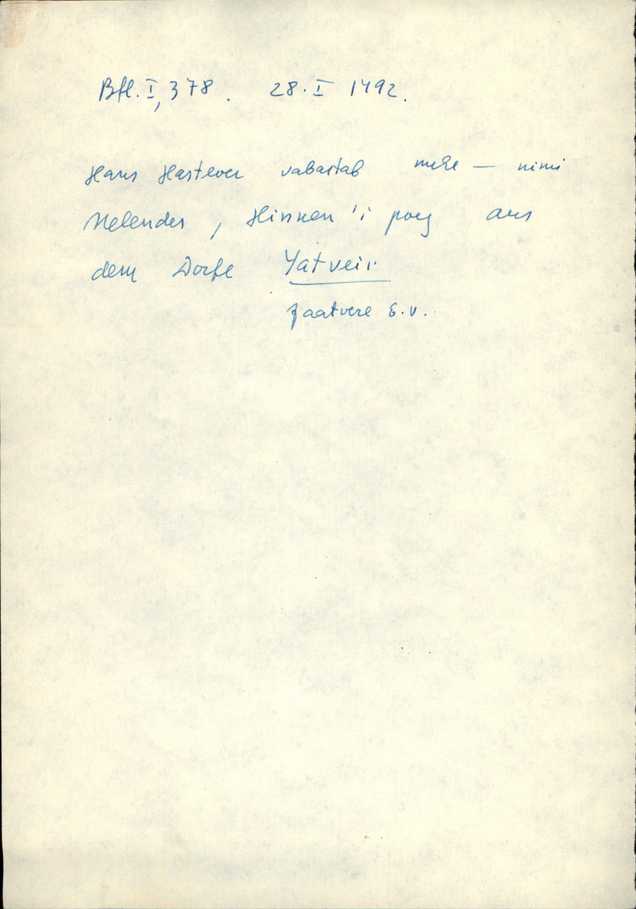 Bfl. I, 378. 28. I 1492.
Hans Hastever vabastab mehe – nimi
Melendes, Hinken'i poeg aus
dem Dorfe Yatveir
Jaatvere s.v.